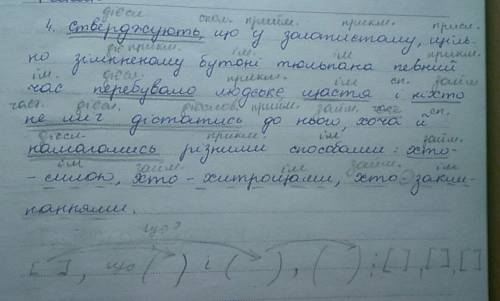 дієсл. спол. прийм. прикм. присл.
4. Стверджують, що у золотистому, щіль-
дієприкм. ім. ім. прикм.
но зімкненому бутоні тюльпана певний
ім. дієсл. прикм. ім. сп. займ.
час перебувало людське щастя і ніхто
част. дієсл. дієслово прийм. займ. сп.
не міг дістатись до нього, хоча й
дієсл. прикм. ім. займ.
намагались різними способами: хто-
ім займ. ім займ. ім
- силою, хто - хитрощами, хто - закли-
наннями.
що?
[ ], що ( ) і ( ), ( ); [ ], [ ], [ ]